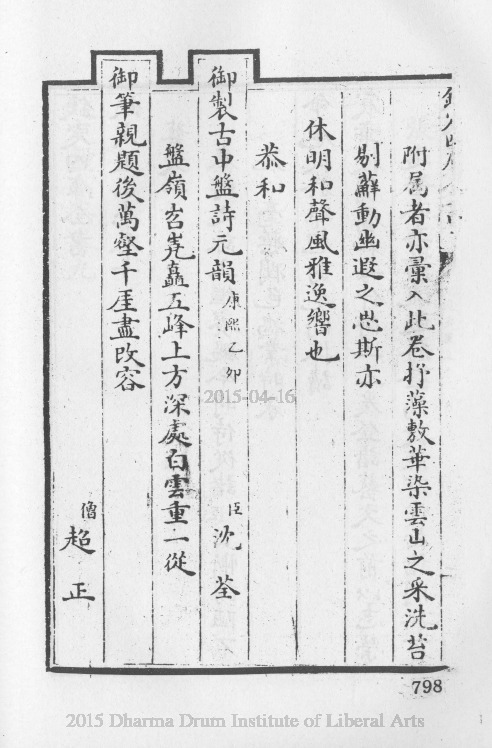 附属者亦彚入此卷抒藻敷華染雲山之采洗苔
剔蘚動幽遐之思斯亦
休明和聲風雅逸響也
恭和
御製古中盤詩元韻康熙乙卯 臣沈荃
盤嶺岧嶤矗五峰上方深處白雲重一從
御筆親題後萬壑千厓盡改容
僧超正
798
2015-04-16
2015 Dharma Drum Institute of Liberal Arts